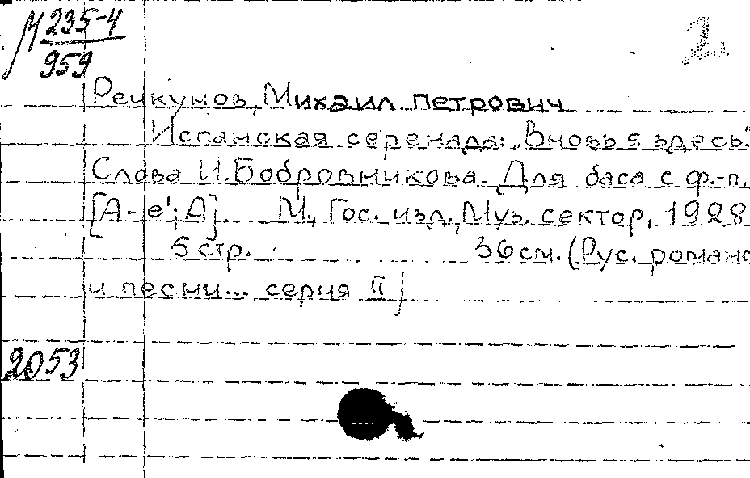 М 235-4
959
2.
Речкунов, Михаил Петрович
Испанская серенада: "Вновь я здесь."
Слова И. Бобровникова. Для баса с ф.-п.
[A-e'; A]. М., Гос. изд., Муз. сектор, 1928
5 стр. 36 см. (Рус. романс
и песни... серия II)
2053